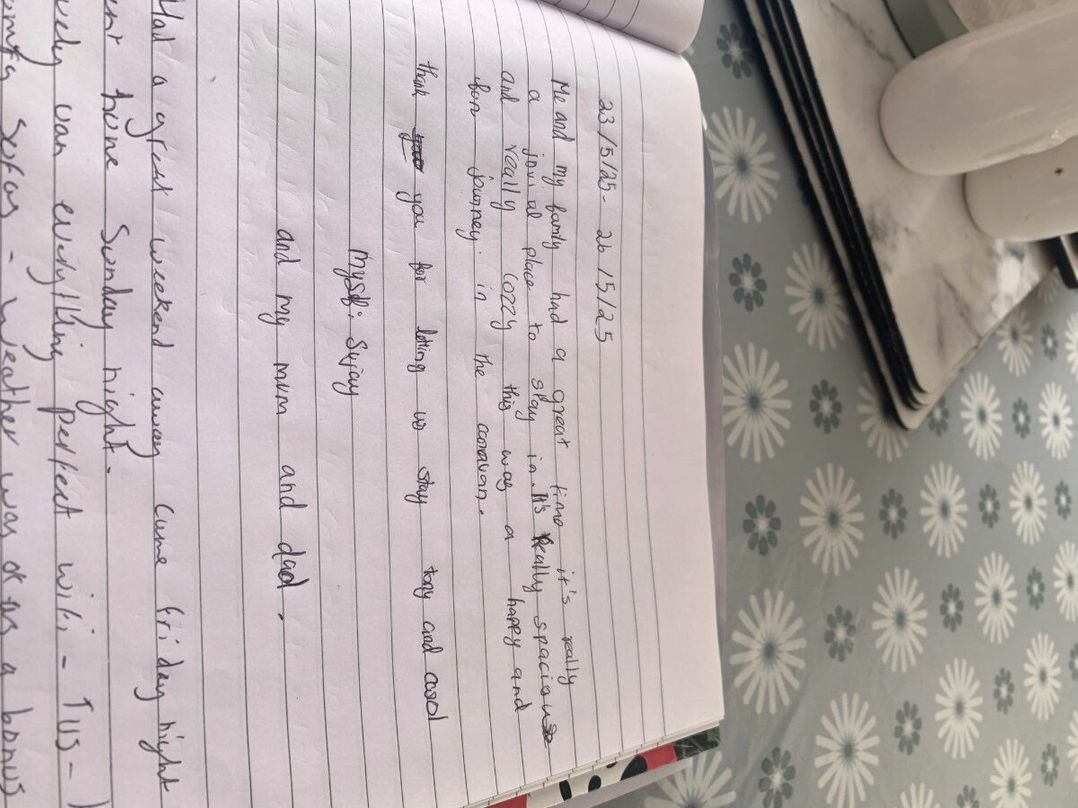 23/5/25 - 26/5/25
Me and my family had a great time it's really
a jovial place to stay in. It's Really spaciouse
and really cozzy this way a happy and
fun journey in the caravan.
thank you for leting us stay tony and carol
Myself: Sujay
and my mum and dad.
Had a great weekend away came friday night
ent home Sunday night -
vely van everything perfect wifi - TVs -
omfy sofas - weather was ok as a bonus